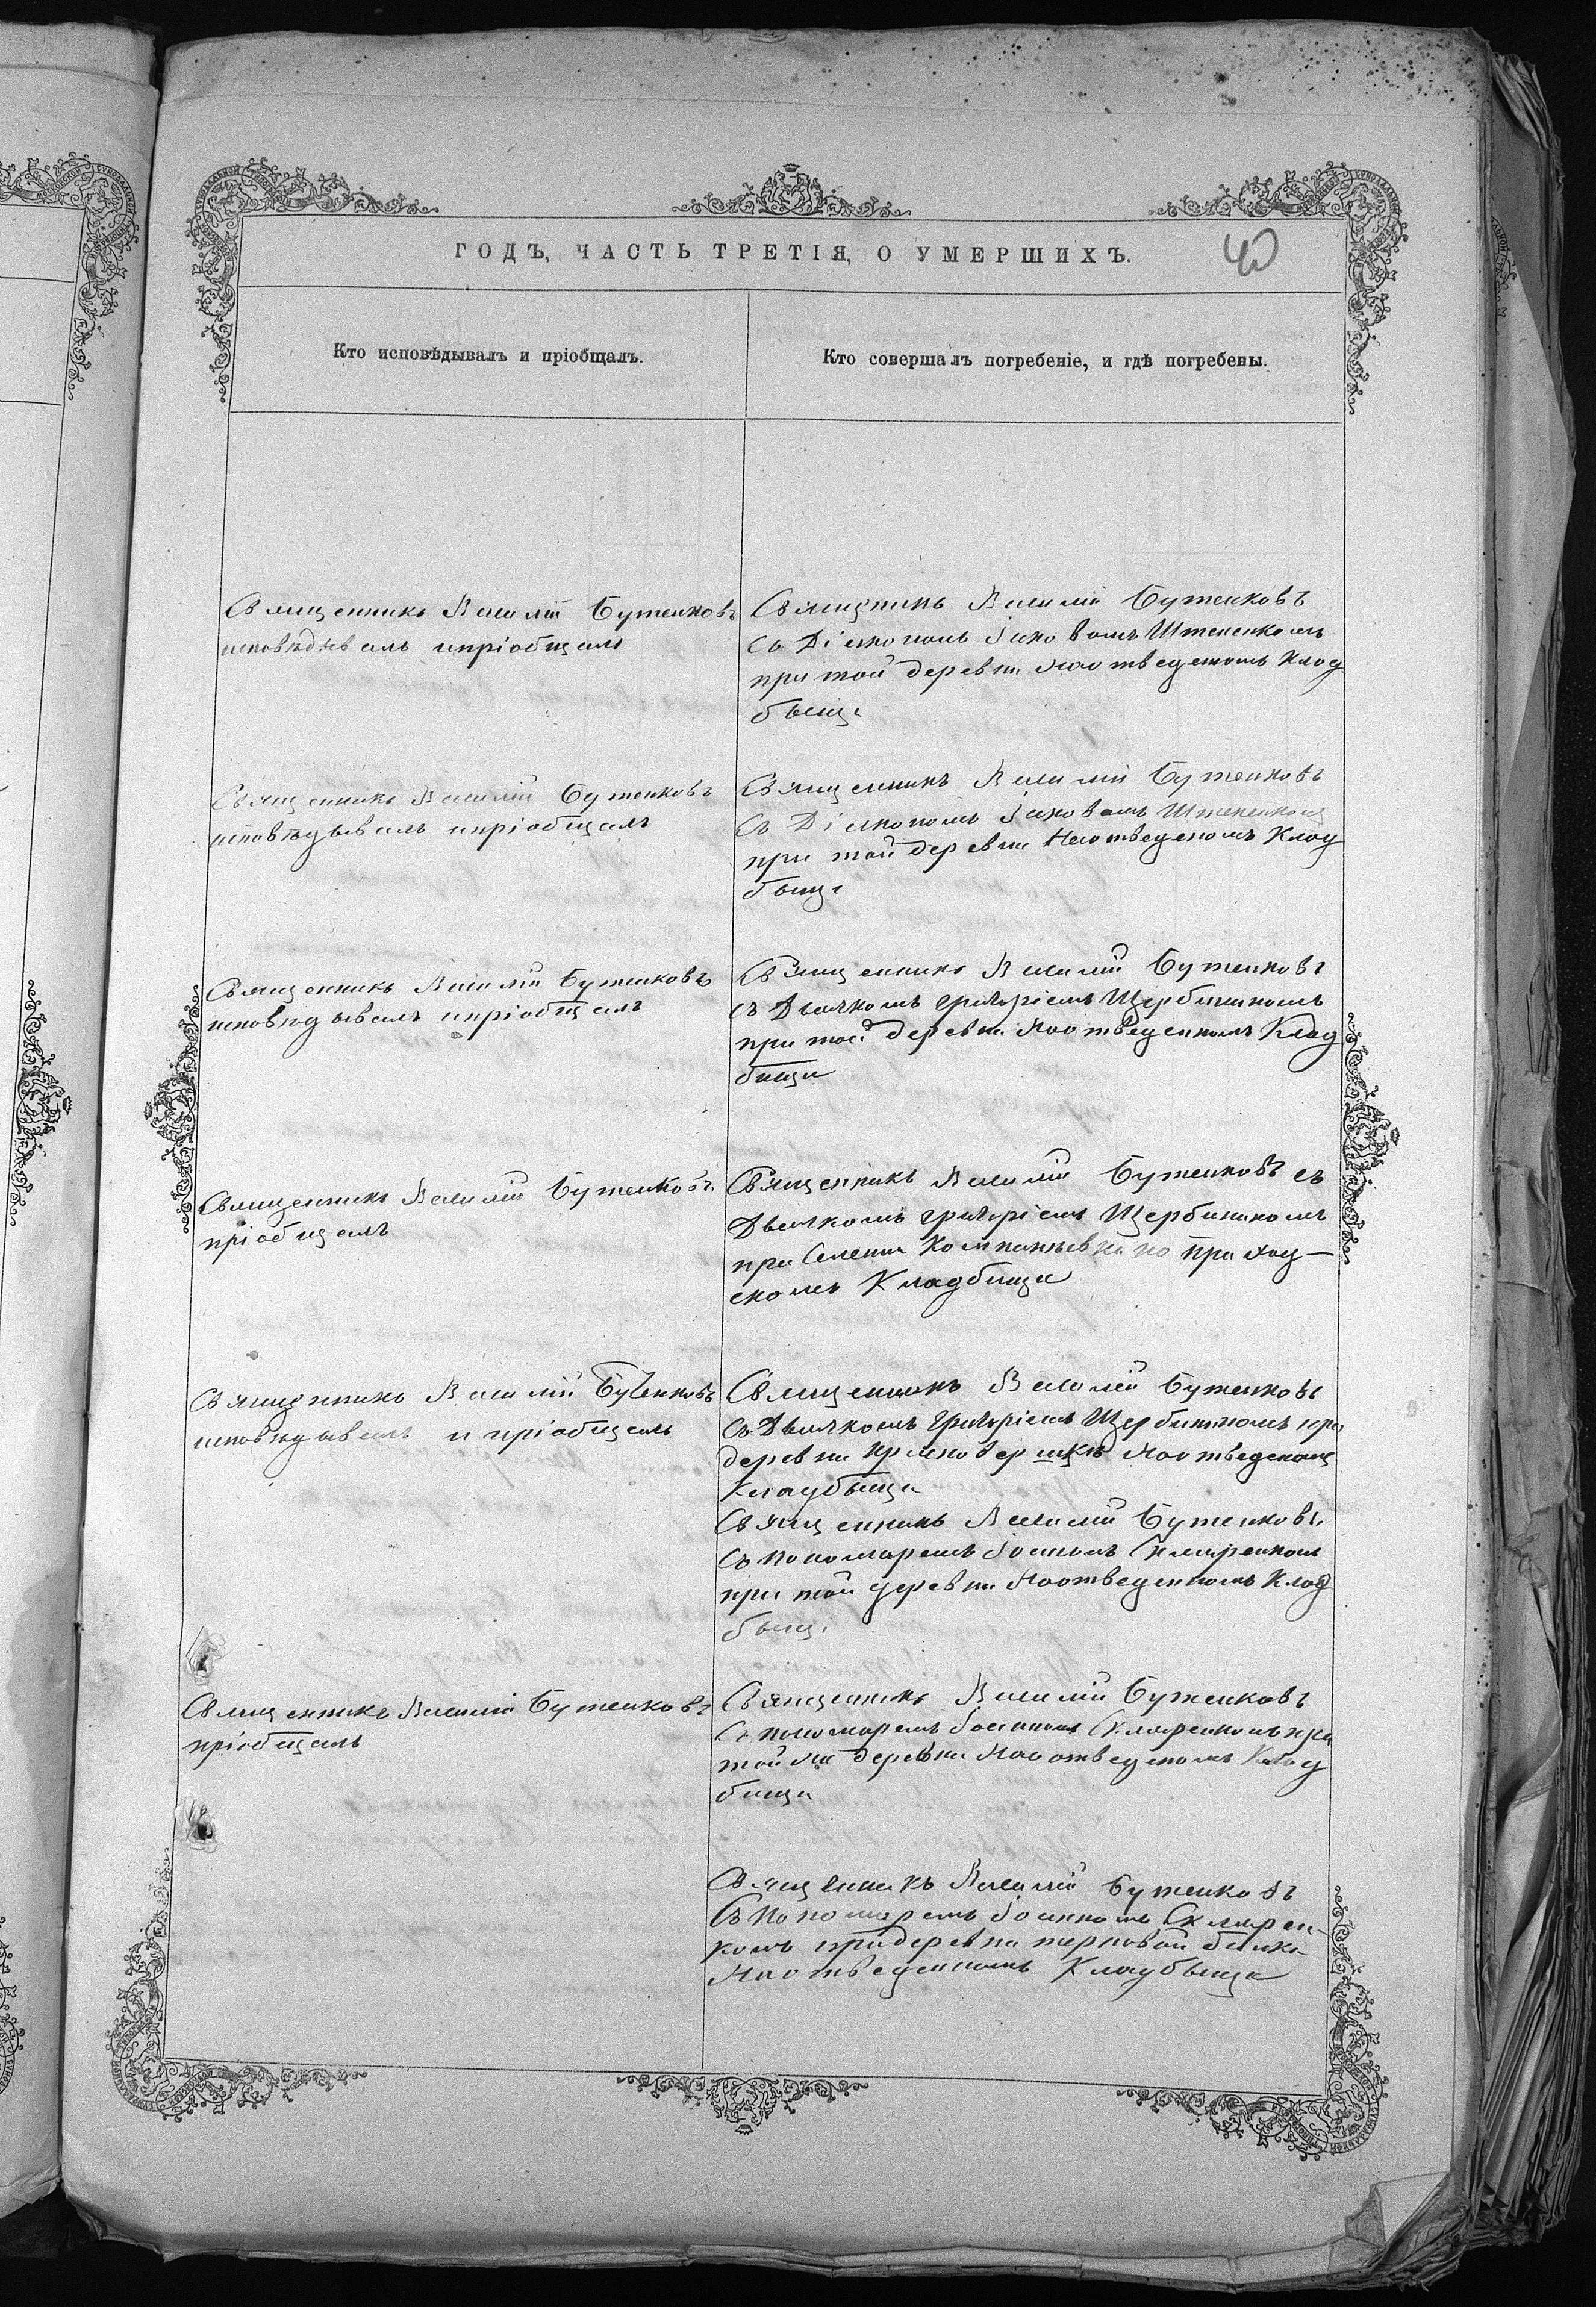 ГОДЪ, ЧАСТЬ ТРЕТІЯ, О УМЕРШИХЪ.
40
Кто исповѣдывалъ и пріобщалъ.
Кто совершалъ погребеніе, и гдѣ погребены.
Священникъ Василій Бутенковъ
исповѣдывалъ и пріобщалъ
Священикъ Василій Бутенковъ
съ Діакономъ Іаковомъ
при той деревни на отведеномъ Клад
быще
Священникъ Василій Бутенковъ
исповѣдывалъ и пріобщалъ
Священникъ Василій Бутенковъ
съ Діакономъ Іаковомъ
при той деревни На отведеномъ Клад
быще
Священникъ Василій Бутенковъ
исповѣдывалъ и пріобщалъ
Священникъ Василій Бутенковъ
съ Дьячкомъ Григоріемъ Щербининомъ
при той деревни на отведенномъ Клад
бища
Священникъ Василій Бутенковъ
пріобщалъ
Священникъ Василій Бутенковъ съ
Дьячкомъ Григоріемъ Щербининомъ
при Селении Компаніевки на приход-
скомъ Кладбища
Священникъ Василій Бутенковъ
исповѣдывалъ и пріобщалъ
Священникъ Василій Бутенковъ
съ Дьячкомъ Григоріемъ Щербининомъ при
деревни на отведеномъ
Кладбыща
Священникъ Василій Бутенковъ
съ пономаремъ Іоанномъ Скляренком
при той деревни на отведенномъ Клад
быщ
Священникъ Василій Бутенковъ
пріобщалъ
Священникъ Василій Бутенковъ
съ пономаремъ Іоанномъ Скляренкомъ при
той же деревни на отведеномъ Клад
бища
Священникъ Василій Бутенковъ
съ пономаремъ Іоанномъ Скларен-
комъ при деревни терновой балки
на отведенномъ Кладбыща